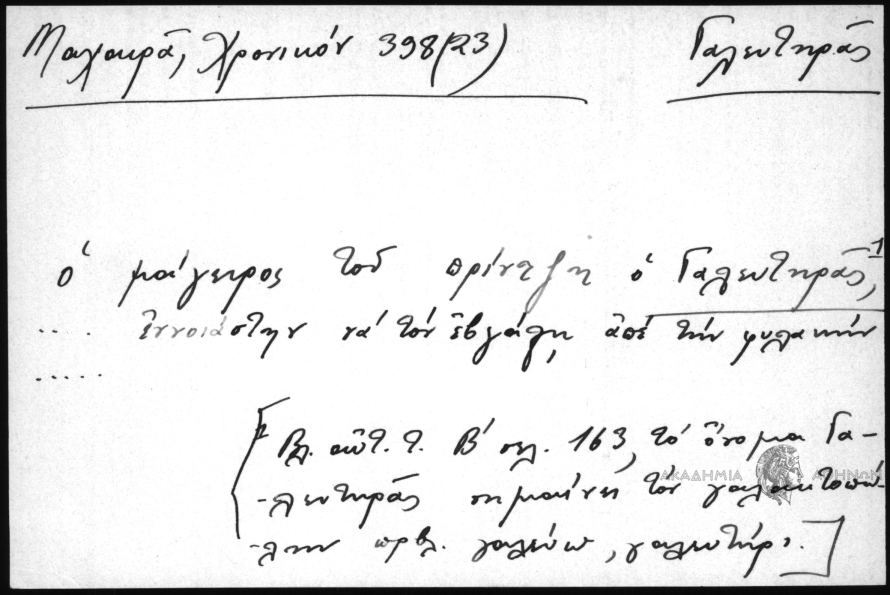 Μαχαιρᾶ, Χρονικόν 398(23) Γαλευτηρᾶς
ὁ μαίγειρος τοῦ πρίντζη ὁ Γαλευτηρᾶς,¹
.... ἐννοιάστην νά τόν ἐβγάλῃ, ἀπέ τήν φυλακήν
.....
[1 Βλ. αὐτ. τ. Β' σελ. 163, τό ὄνομα Γα-
-λευτηρᾶς σημαίνει τόν γαλακτοπώ-
-λην πρβλ. γαλεύω, γαλευτήρι.]
ΑΚΑΔΗΜΙΑ ΑΘΗΝΩΝ